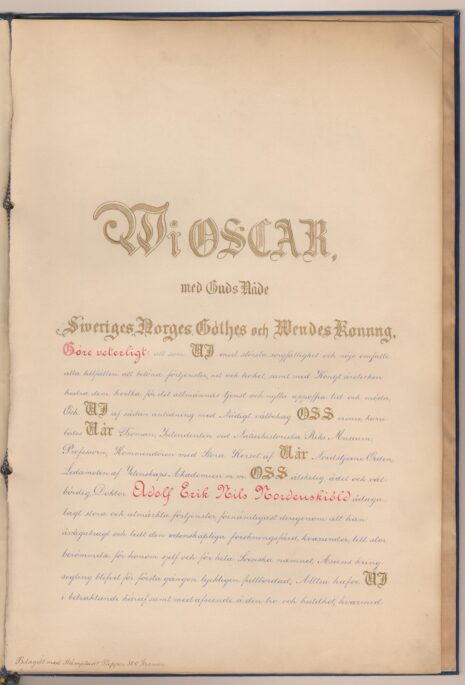 Wi OSCAR,
med Guds Nåde
Sweriges, Norges, Göthes och Wendes Konung,
Göre veterligt: att som WJ med största sorgfällighet och nöje omfatte
alla tillfällen att belöna förtjenster, nit och trohet, samt med Kongl. ärebetygelser
hedra dem, hvilka för det allmännas tjenst och nytta uppoffra tid och möda,
Och WJ af sådan anledning med Nådigt välbehag OSS erinre, huru-
ledes Wår Troman, Intendenten vid Naturhistoriska Riks Museum,
Professorn, Kommendören med Stora Korset af Wår Nordstjerne Orden,
Ledamoten af Vetenskaps Akademien m. m. OSS älskelig, ädel och väl-
bördig, Doktor Adolf Erik Nils Nordenskiöld ådaga-
lagt stora och utmärkta förtjenster, förnämligast derigenom att han
åvägabragt och ledt den vetenskapliga forskningsfärd, hvarunder, till stor
berömmelse för honom sjelf och för hela Svenska namnet, Asiens kring-
segling blefvit för första gången lyckligen fullbordad, Alltså hafve WJ
i betraktande häraf samt med afseende å den tro och huldhet, hvarmed
Belagdt med Stämpladt Papper 500 Kronor